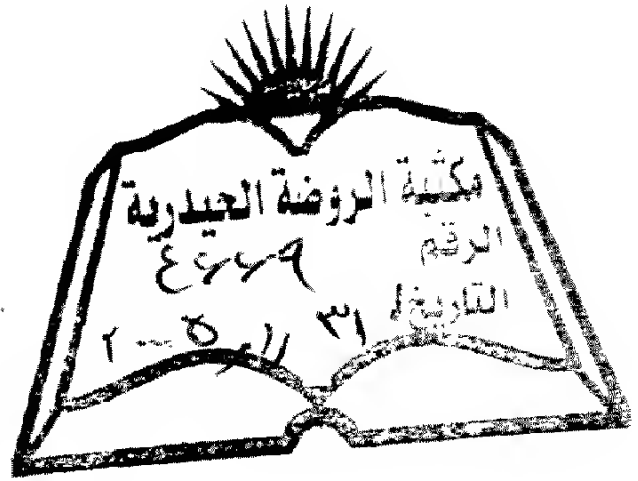 مكتبة الروضة الحيدرية
الرقم
٤٦٦٩
التاريخ ٣١